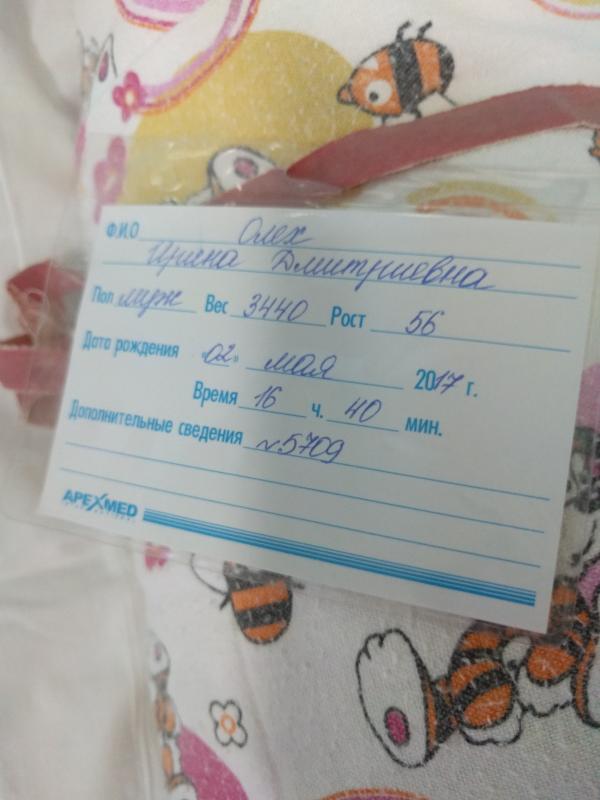 Ф.И.О Олех
Ирина Дмитриевна
Пол муж Вес 3440 Рост 56
Дата рождения «02» мая 2017 г.
Время 16 ч. 40 мин.
Дополнительные сведения №5709
APEXMED